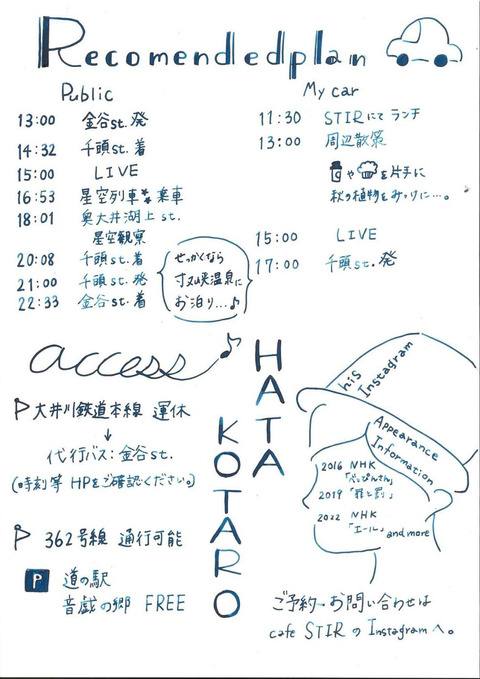 Recomendedplan
Public
13:00 金谷st.発
14:32 千頭st.着
15:00 LIVE
16:53 星空列車 乗車
18:01 奥大井湖上st.
星空観察
20:08 千頭st.着
21:00 千頭st.発
22:33 金谷st.着
せっかくなら
寸又峡温泉に
お泊り…♪
My car
11:30 STIRにて ランチ
13:00 周辺散策
や を片手に
秋の植物をみっけに…。
15:00 LIVE
17:00 千頭st.発
access
大井川鉄道本線 運休
↓
代行バス:金谷st.
(時刻等 HPをご確認ください。)
362号線 通行可能
P 道の駅
音戯の郷 FREE
HATA
KOTARO
his
Instagram
Appearance
Information
2016 NHK
「べっぴんさん」
2019 「罪と罰」
2022 NHK
「エール」 and more
ご予約・お問い合わせは
cafe STIR の Instagramへ。